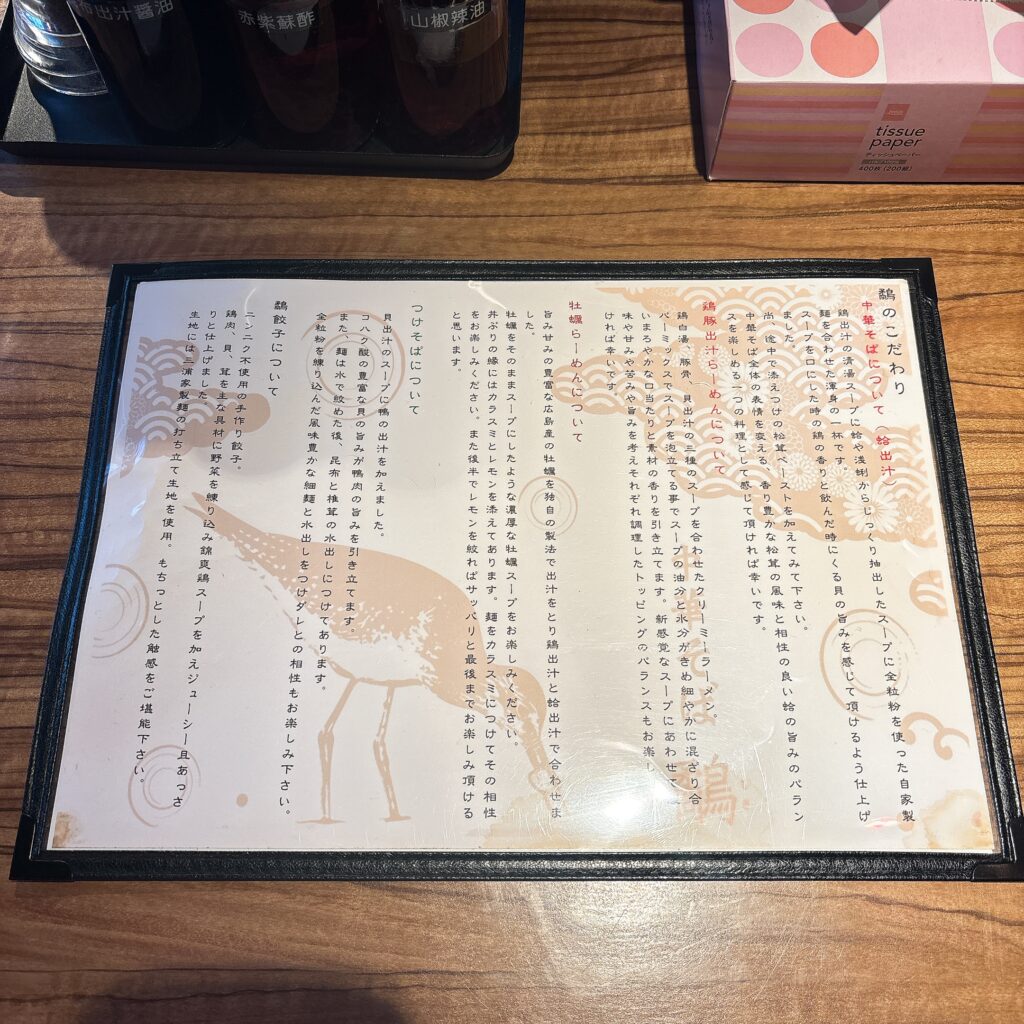 布出汁醤油
赤紫蘇酢
山椒辣油
tissue
paper
ティシュペーパー
400枚(200組)
鵠のこだわり
中華そばについて(蛤出汁)
鶏出汁の清湯スープに蛤や浅蜊からじっくり抽出したスープに全粒粉を使った自家製
麺を合わせた渾身の一杯です。
スープを口にした時の鶏の香りと飲んだ時にくる貝の旨みを感じて頂けるよう仕上げ
ました。
尚、途中で添えつけの松茸ペーストを加えてみて下さい。
中華そば全体の表情を変える、香り豊かな松茸の風味と相性の良い蛤の旨みのバラン
スを楽しめる一つの料理として感じて頂ければ幸いです。
鶏豚出汁らーめんについて
鶏白湯、豚骨、貝出汁の三種のスープを合わせたクリーミーラーメン。
バーミックスでスープを泡立てる事でスープの油分と水分がきめ細やかに混ざり合
いまろやかな口当たりと素材の香りを引き立てます。新感覚なスープにあわせて
味や甘みや苦みや旨みを考えそれぞれ調理したトッピングのバランスもお楽し
ければ幸いです
牡蠣らーめんについて
旨み甘みの豊富な広島産の牡蠣を独自の製法で出汁をとり鶏出汁と蛤出汁で合わせま
した。
牡蠣をそのままスープにしたような濃厚な牡蠣スープをお楽しみください。
丼ぶりの縁にはカラスミとレモンを添えてあります。麺をカラスミにつけてその相性
をお楽しみください。また後半でレモンを絞ればサッパリと最後までお楽しみ頂ける
と思います。
つけそばについて
貝出汁のスープに鴨の出汁を加えました。
コハク酸の豊富な貝の旨みが鴨肉の旨みを引き立てます。
また、麺は水で絞めた後、昆布と椎茸の水出しにつけてあります。
全粒粉を練り込んだ風味豊かな細麺と水出しをつけダレとの相性もお楽しみ下さい。
鵠餃子について
ニンニク不使用の手作り餃子。
鶏肉、貝、茸を主な具材に野菜を練り込み錦爽鶏スープを加えジューシー且あっさ
りと仕上げました。
生地には三浦家製麺の打ち立て生地を使用。もちっとした触感をご堪能下さい。
中華そば 鵠